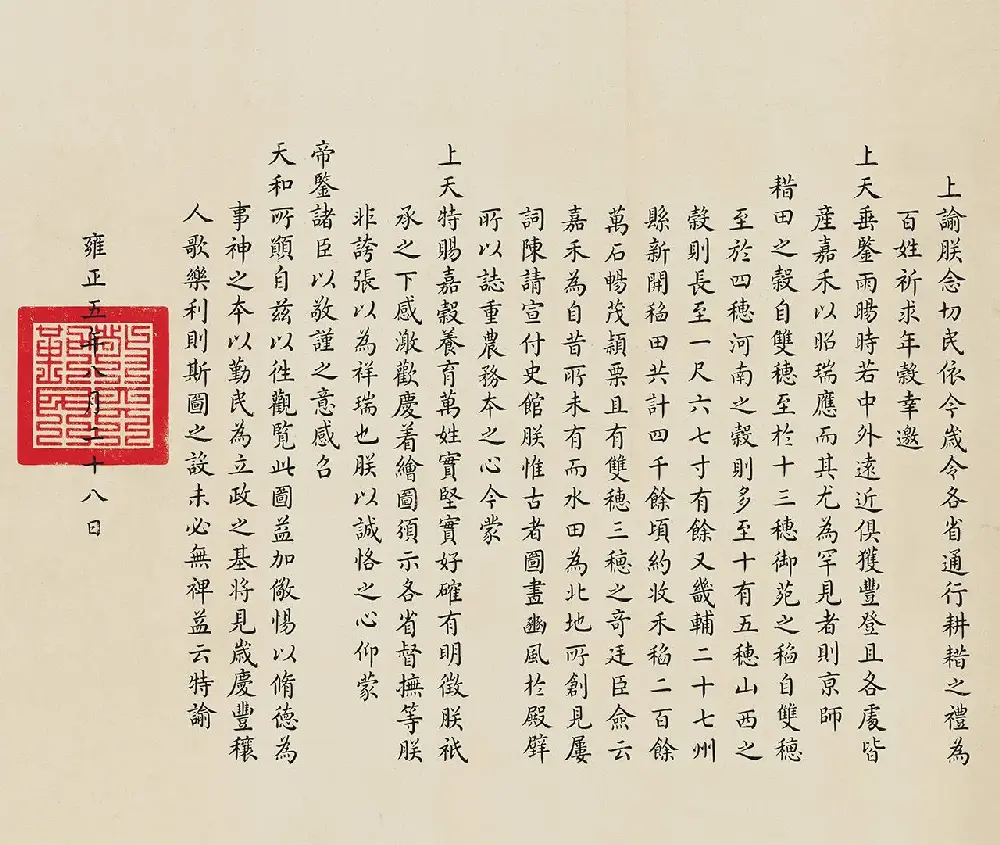 上諭朕念切民依今歲令各省通行耕耤之禮為
百姓祈求年穀幸邀
上天垂鑒雨暘時若中外遠近俱獲豐登且各處皆
產嘉禾以昭瑞應而其尤為罕見者則京師
耤田之穀自雙穗至於十三穗御苑之稻自雙穗
至於四穗河南之穀則多至十有五穗山西之
穀則長至一尺六七寸有餘又畿輔二十七州
縣新開稻田共計四千餘頃約收禾稻二百餘
萬石暢茂穎栗且有雙穗三穗之奇廷臣僉云
嘉禾為自昔所未有而水田為北地所創見屢
詞陳請宣付史館朕惟古者圖畫豳風於殿壁
所以誌重農務本之心今蒙
上天特賜嘉穀養育萬姓實堅實好確有明徵朕祇
承之下感激歡慶着繪圖頒示各省督撫等朕
非誇張以為祥瑞也朕以誠恪之心仰蒙
帝鑒諸臣以敬謹之意感召
天和所顒自茲以往觀覽此圖益加儆惕以脩德為
事神之本以勤民為立政之基將見歲慶豐穰
人歌樂利則斯圖之設未必無裨益云特諭
雍正五年八月二十八日